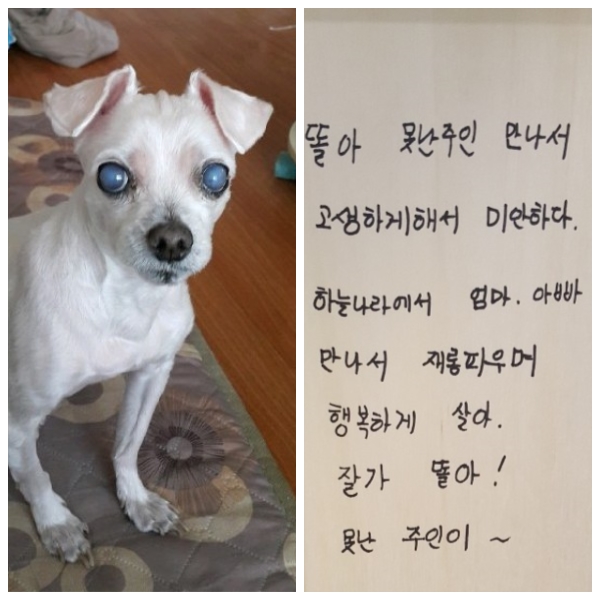 똘아 못난주인 만나서
고생하게해서 미안하다.
하늘나라에서 엄마. 아빠
만나서 재롱피우며
행복하게 살아.
잘가 똘아!
못난 주인이 ~